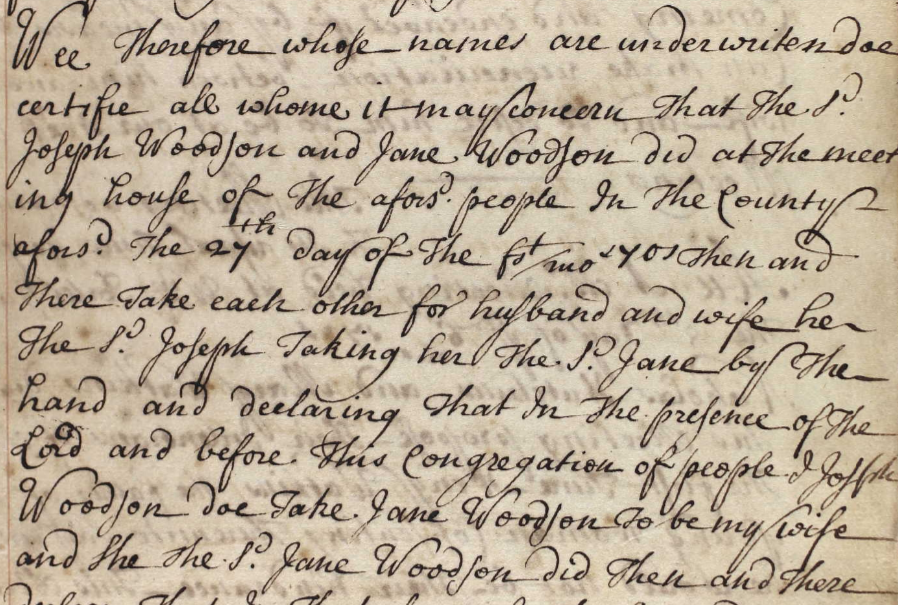 Wee Therefore whose names are underwriten doe
certifie all whome it may concern That the Sd.
Joseph Woodson and Jane Woodson did at the meet
ing house of the aforsd. people In the County
aforsd. The 27th day of the fst/mo 1701 Then and
There Take each other for husband and wife he
The Sd. Joseph Taking her The Sd. Jane by The
hand and declaring That In The presence of The
Lord and before This Congregation of people I Joseph
Woodson doe Take Jane Woodson To be my wife
and She the Sd. Jane Woodson did Then and There